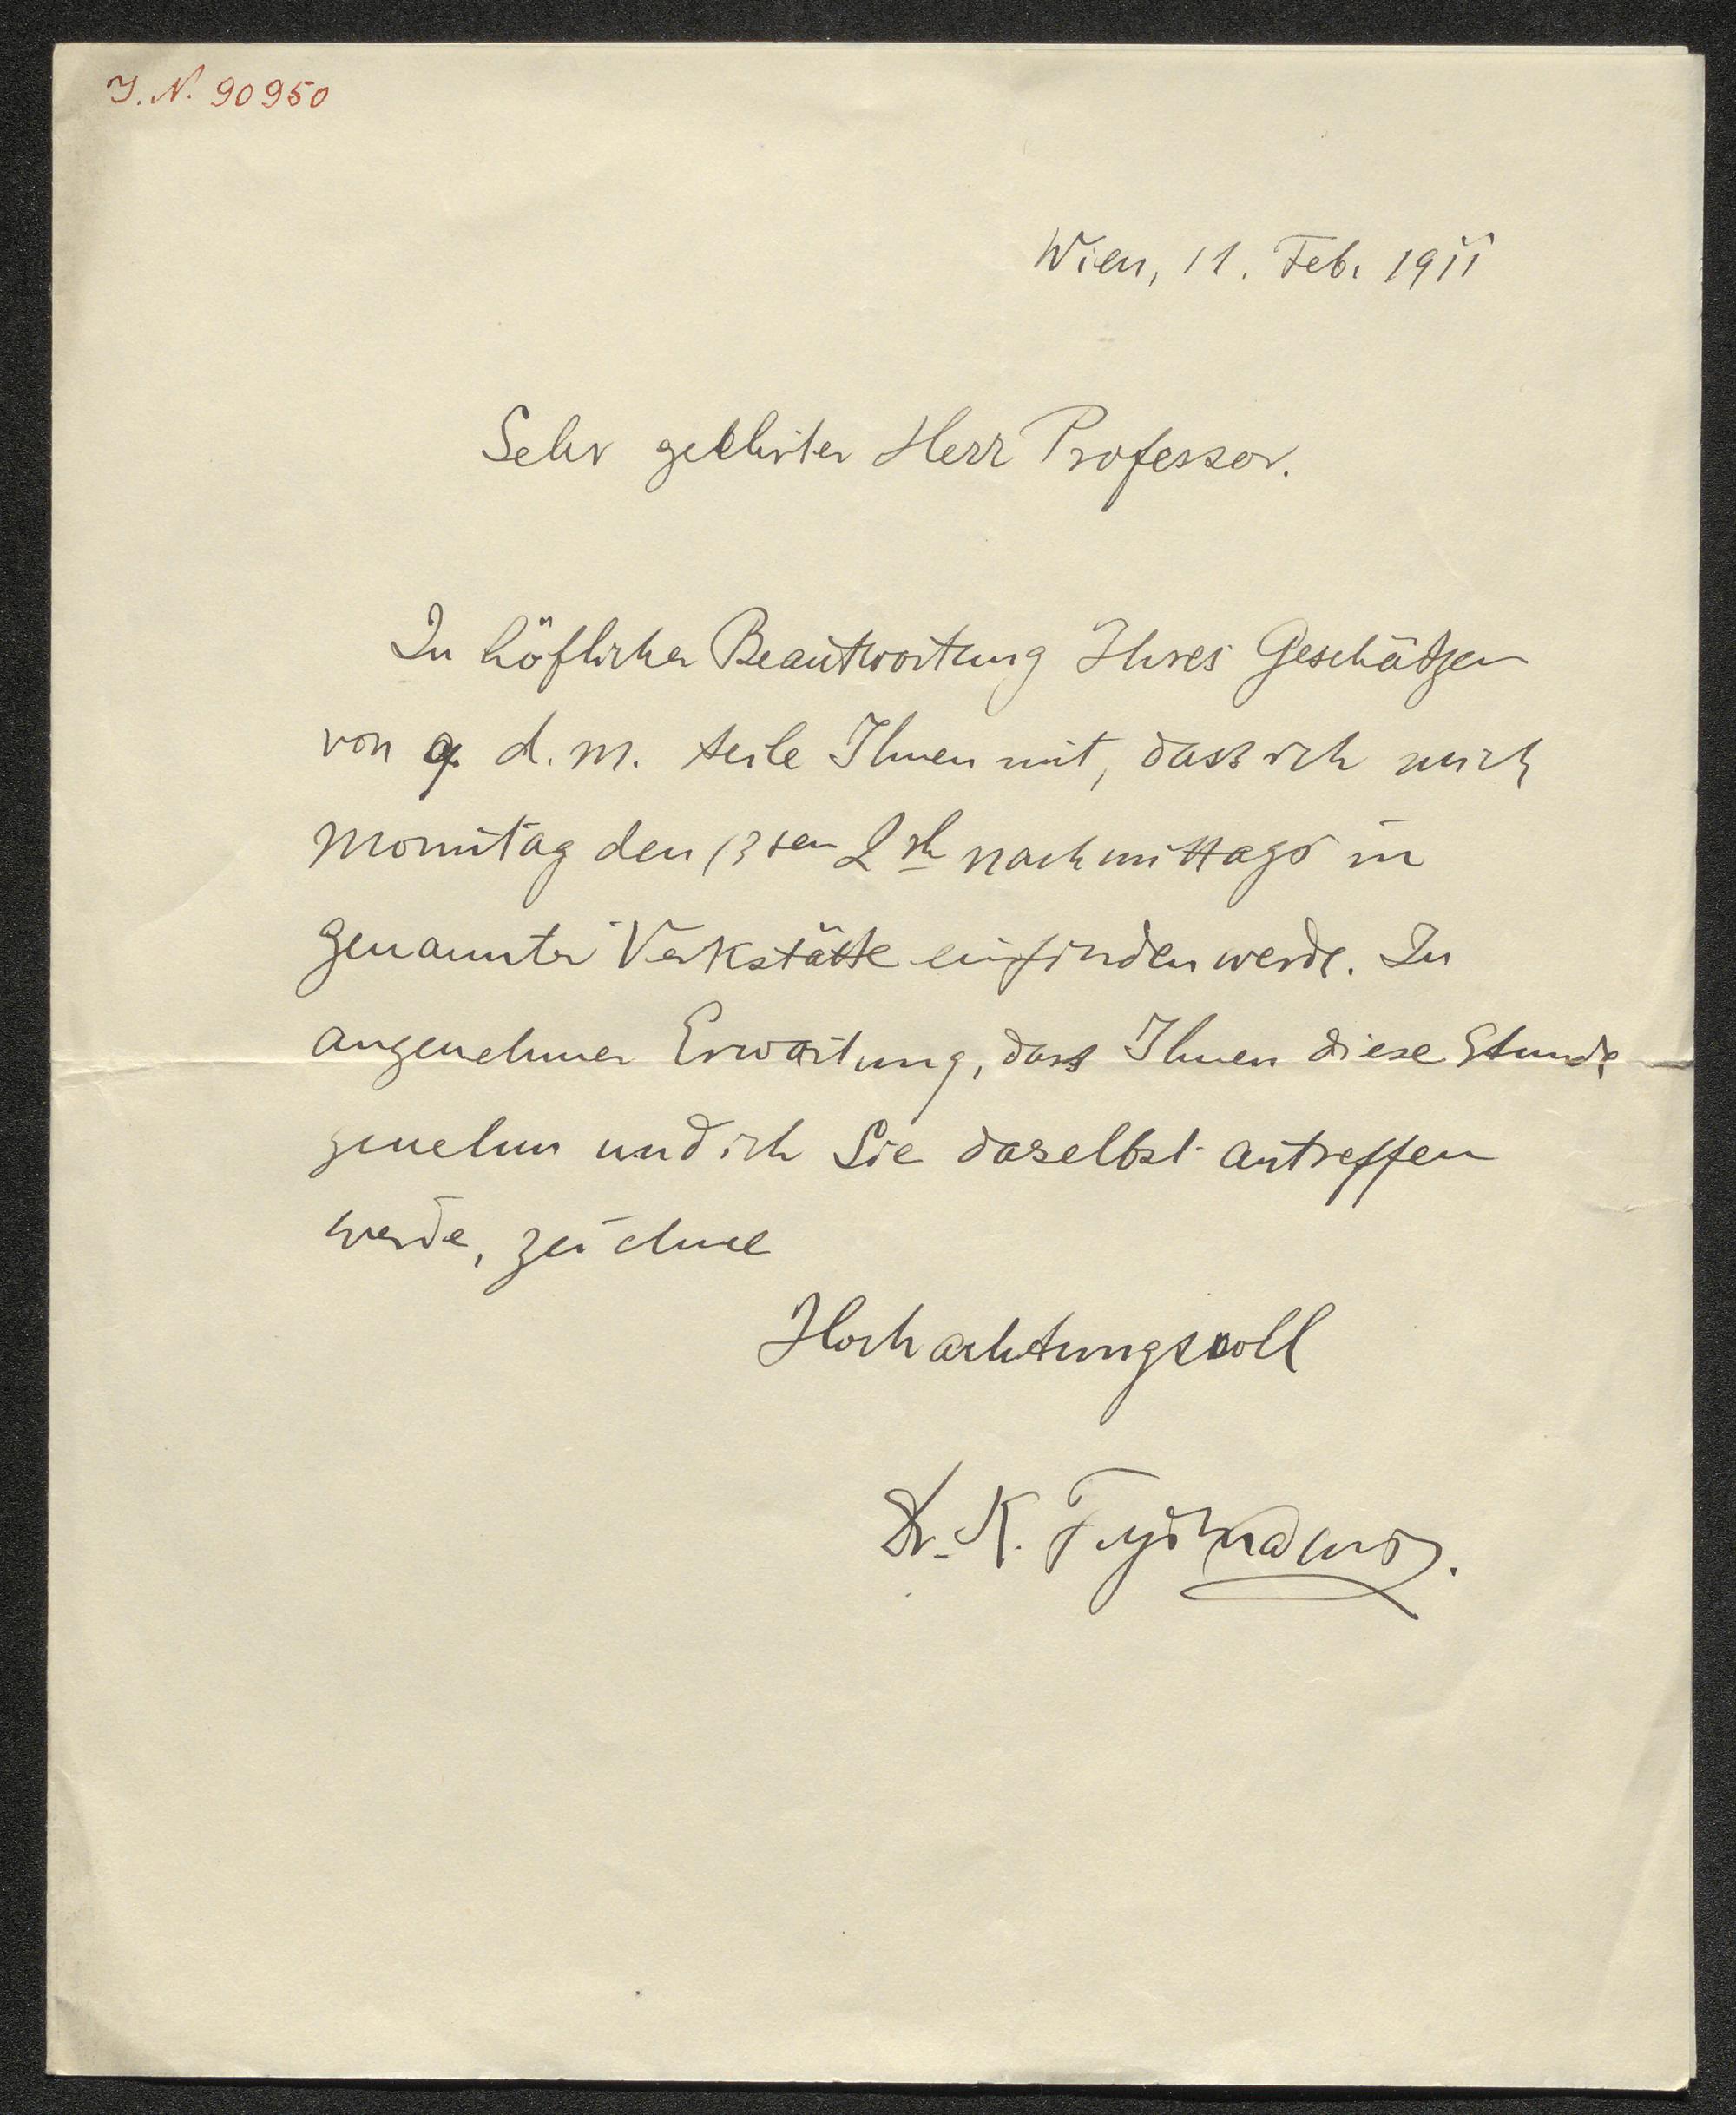 J. N. 90950
Wien, 11. Feb. 1911
Sehr geehrter Herr Professor.
In höflicher Beantwortung Ihres Geschätzen
von 9. d. M. teile Ihnen mit, dass ich mich
Monntag den 13ten 2 h nachmittags in
genannter Verkstätte einfinden werde. In
angenehmer Erwartung, dass Ihnen diese Stunde
genehm und ich Sie daselbst antreffen
werde, zeichne
Hochachtungsvoll
Dr. K.